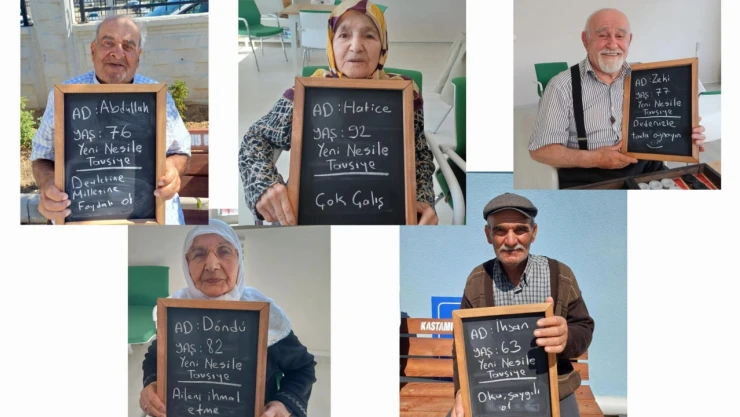 AD: Abdullah
YAŞ: 76
Yeni Nesile
Tavsiye
Devletine
Milletine
Faydalı ol
AD: Hatice
YAŞ: 92
Yeni Nesile
Tavsiye
Çok Çalış
AD: Zeki
YAŞ: 77
Yeni Nesile
Tavsiye
Dedenizle
tavla oynayın
AD: Döndü
YAŞ: 82
Yeni Nesile
Tavsiye
Aileni ihmal
etme
KASTAM
AD: İhsan
YAŞ: 63
Yeni Nesile
Tavsiye
Oku, saygılı
ol